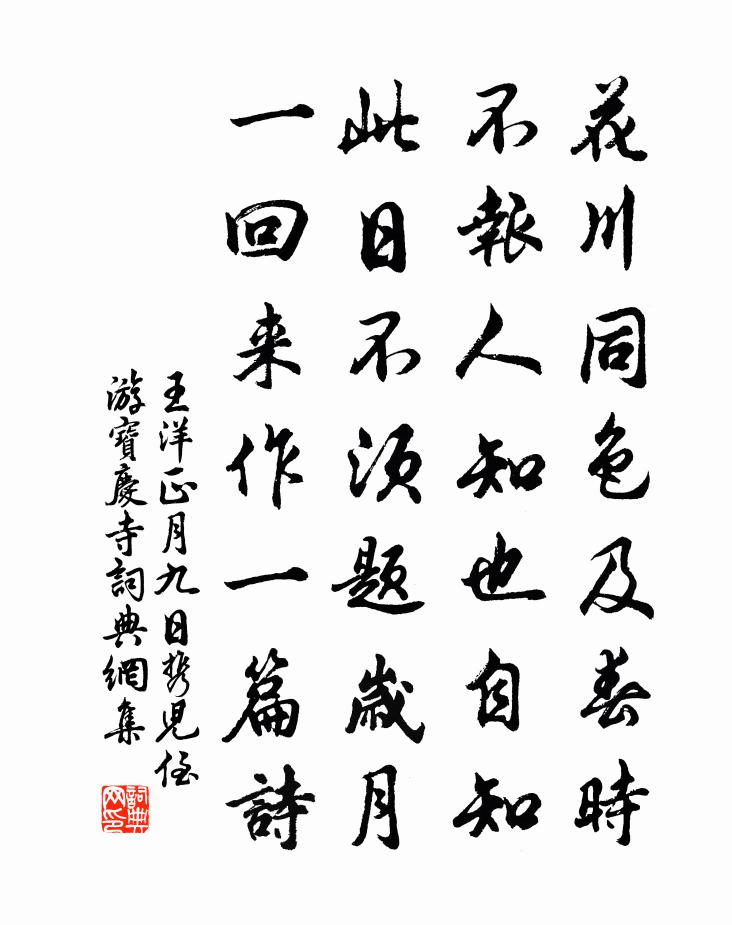 花川同色及春時
不報人知也自知
此日不須題歲月
一回来作一篇詩
王洋正月九日携児侄
游寶慶寺詞典網集
詞典网印